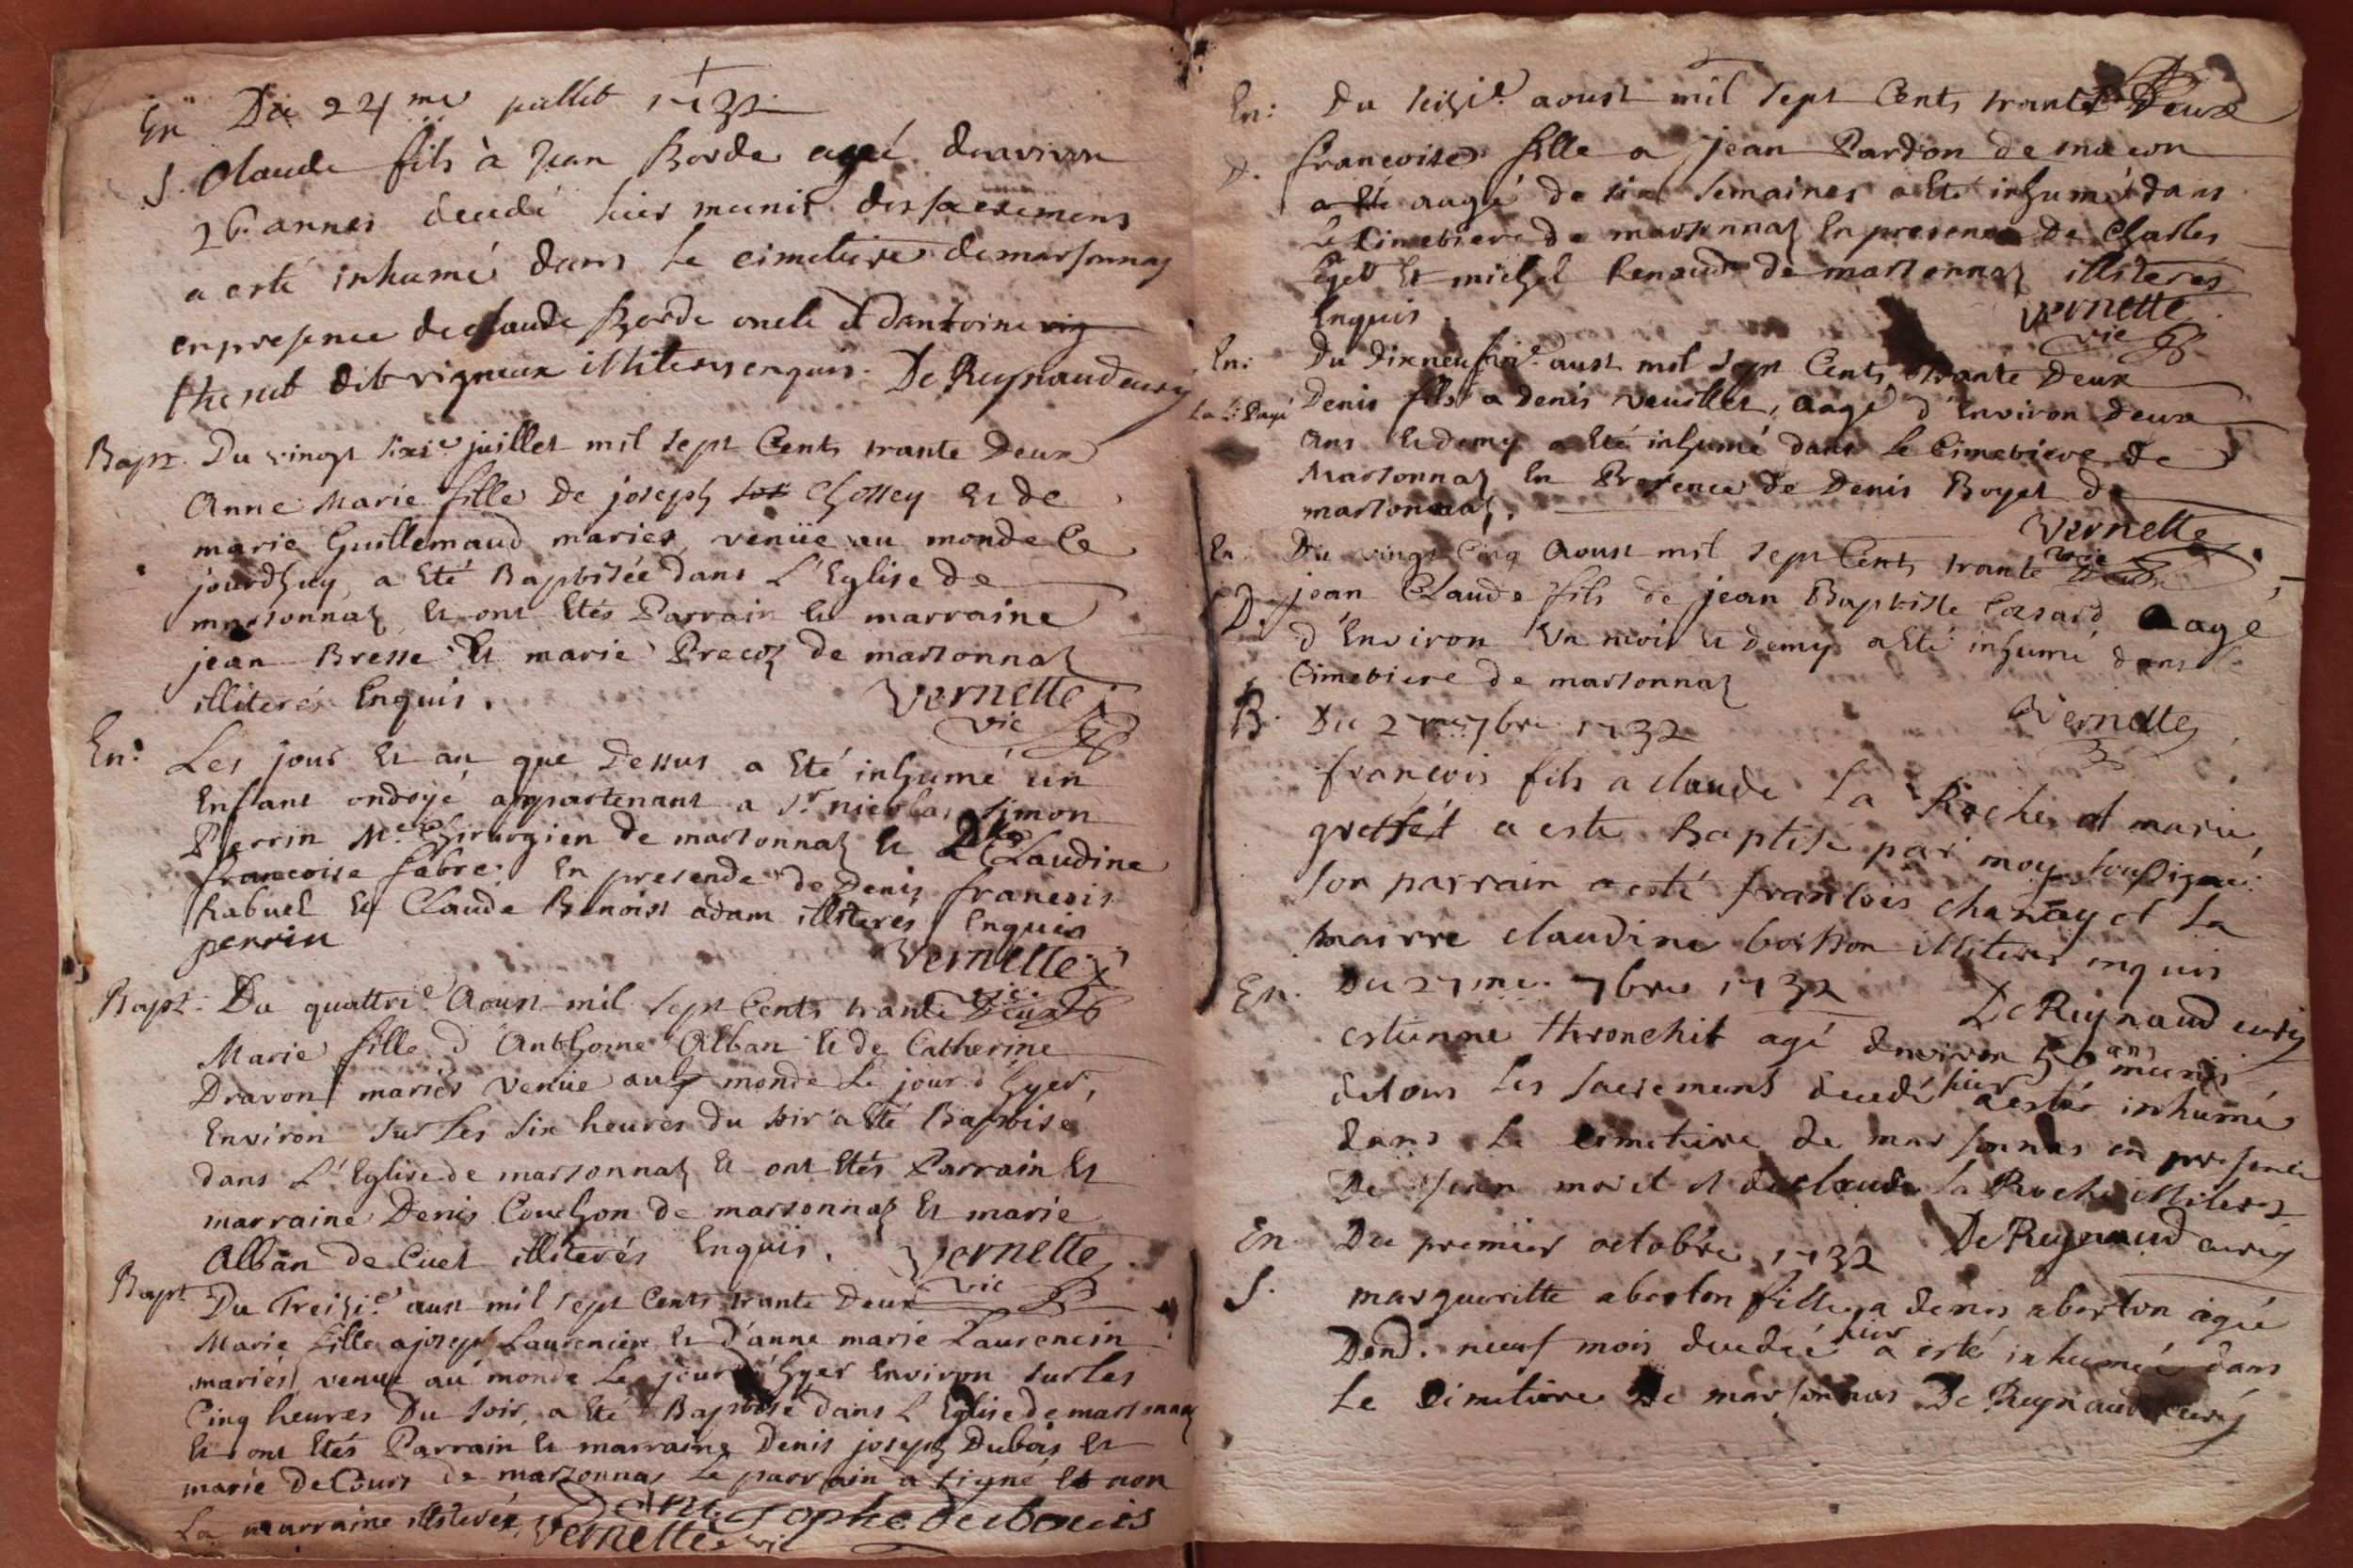 En Du 24me juillet 1732
S. Claude fils à Jean Borde agé denviron
26 annes decedé hier munit des sacremens
a esté inhumé dans le cimetiere de marsonnas
en presence de claude Borde oncle et dantoine vig
thenut dit vigneux illiteres enquis. De Reynaud curé
Bapt. Du vingt sixie juillet mil sept Cents trante Deux
Anne Marie fille de joseph Chossey et de
marie Guillemaud mariés, venüe au monde Ce
jourdhuy, a Eté Baptisée dans L'Eglise de
marsonnaz et ont Etés Parrain et marraine
jean Bresse Et marie Precoz de marsonnaz
illiterés Enquis. Vernette
vic
En: Les jour et an que Dessus a Eté inhumé un
Enfant ondoyé appartenant a Sr nicolas Simon
Perrin Me Chirurgien de marsonnaz et Claudine
francoise fabre. En presence de Denis francois
Rabuel et Claude Benoist adam illiteres Enquis
perrin Vernette
vic
Bapt. Du quattrie Aoust mil sept Cents trante Deux
Marie fille d'Anthoine Alban et de Catherine
Dravon mariés venüe au monde Le jour d'hyer,
Environ sur les six heures du soir a Eté Baptisé
dans L'Eglise de marsonnaz et ont Etés Parrain Et
marraine Denis Couchon de marsonnaz Et marie
Alban de Cuet illiterés Enquis. Vernette
vic
Bapt Du Treizie aust mil sept Cents trante Deux
Marie fille a joseph Laurencin et d'anne marie Laurencin
mariés, venue au monde Le jour d'hyer Environ sur les
Cinq heures Du soir, a Eté Baptisé dans L'Eglise de marsonnaz
Et ont Etés Parrain et marraine Denis joseph Dubois Et
marie DeCours de marsonnaz Le parrain a signé Et non
La marraine illiterée Denis Josphe dubouis
Vernette vic
En: Du seizie aoust mil sept Cents trante Deux
D. francoise fille a jean Pardon de macon
a Eté augé de six semaines a Eté inhumé dans
Le Cimetiere de marsonnaz En presence de Charles
et michel Renaud de marsonnaz illiteres
Enquis. Vernette
vic
En: Du Dixneufvie aust mil sept Cents trante Deux
Denis fils a denis vauillet, augé d'Environ deux
ans Et demy a Eté inhumé dans Le Cimetiere de
Marsonnaz En Presence de Denis Boyet de
marsonnaz. Vernette
vic
En. Du vingt Cinq Aoust mil sept Cents trante Deux
D. jean Claude fils de jean Baptiste Aagé
d'Environ Un mois et demy a Eté inhumé dans le
Cimetiere de marsonnaz
Vernette
B. Du 2me 7bre 1732
françois fils a claude La Roche et marie
greffet a esté Baptisé par moy soussigné
son parrain a esté francois chanay et la
marrre claudine boisson illiteres enquis
De Reynaud curé
En. Du 27me. 7bre 1732
estienne thronchit agé denviron 50 ans munis
de tous les sacremens decedé hier a estés inhumé
dans le cimetiere de marsonnas en presence
De Jean moret et de claude la Roche illiteres
De Reynaud curé
En Du premier octobre 1732
S. margueritte aberton fille a denis aberton agée
Dend. neuf mois decedeé hier a esté inhumeé dans
le Cimetiere de marsonnas De Reynaud curé